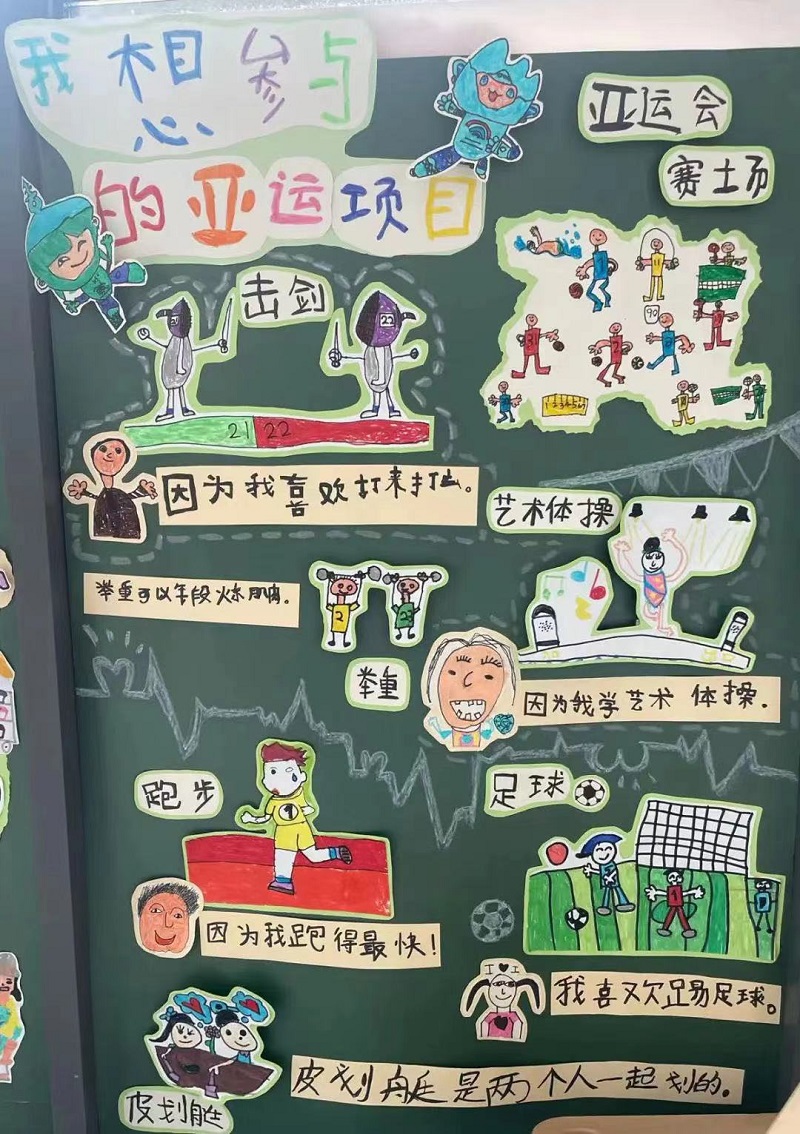 我想参与
的亚运项目
亚运会
赛土场
击剑
21 22
因为我喜欢打来打去。
艺术体操
因为我学艺术体操.
举重
跑步
因为我跑得最快！
足球
我喜欢踢足球。
皮划艇
皮划艇是两个人一起划的.